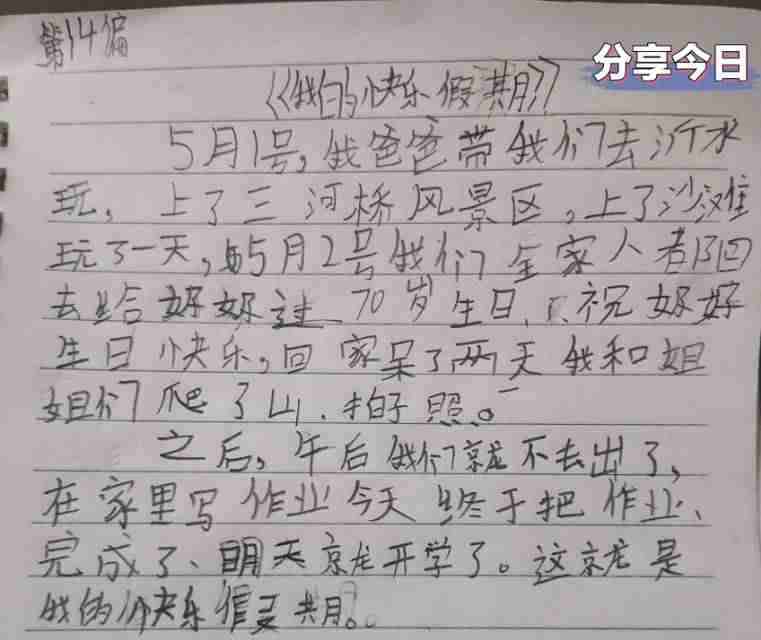 第14偏
分享今日
《我的快乐假期》
5月1号,我爸爸带我们去沂水
玩,上了三河桥风景区,上了沙滩
玩了一天,5月2号我们全家人都回
去给奶奶过70岁生日,祝奶奶
生日快乐,回家呆了两天我和姐
姐们爬了山.拍了照。
之后,午后我们就不去出了,
在家里写作业今天终于把作业、
完成了、明天就开学了。这就是
我的快乐假期。